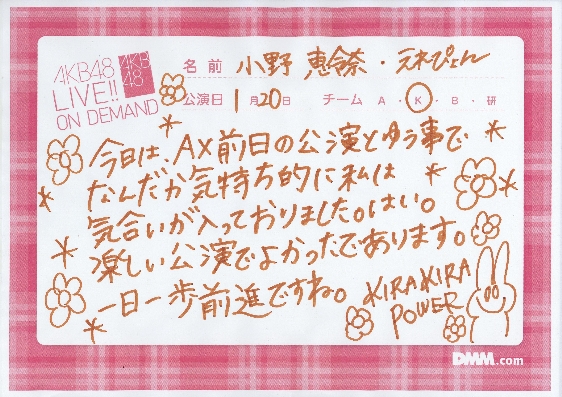 AKB48
LIVE!!
ON DEMAND
AKB
48
名前 小野 恵令奈・えれぴょん
公演日 1月20日 チーム A・K・B・研
今日は、AX前日の公演とゆう事で
なんだか気持ち的に私は
気合いが入っておりました。はい。
楽しい公演でよかったであります。
一日一歩前進ですね。
KIRAKIRA
POWER
DMM.com